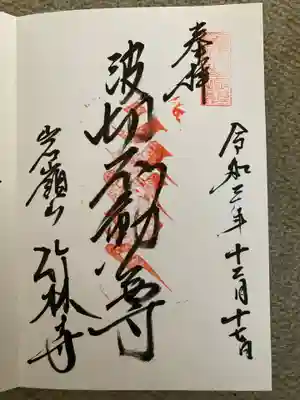 奉拝
令和二年十二月十七日
波切不動尊
嶺山
林寺